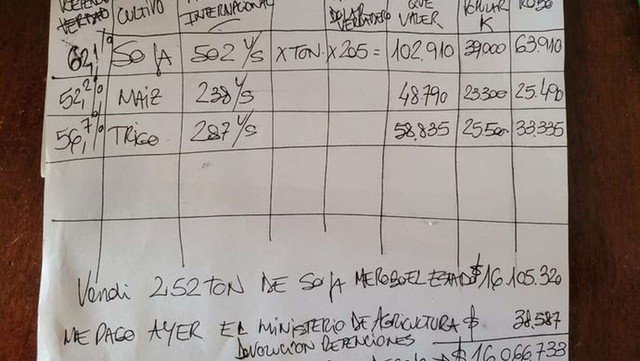 VERDAD CULTIVO INTERNACIONAL DOLAR VERDADERO QUE VALER K ROBO
62,1% SOJA 502 U/S X TON X 205 = 102.910 39000 63.910
52,2% MAIZ 238 U/S 48.790 23.300 25.490
56,7% TRIGO 287 U/S 58.835 25.500 33.335
Vendi 252 TON DE SOJA ME ROBO EL ESTADO $16.105.320
ME PAGO AYER EL MINISTERIO DE AGRICULTURA $ 38.587
DEVOLUCION RETENCIONES
$16.066.733